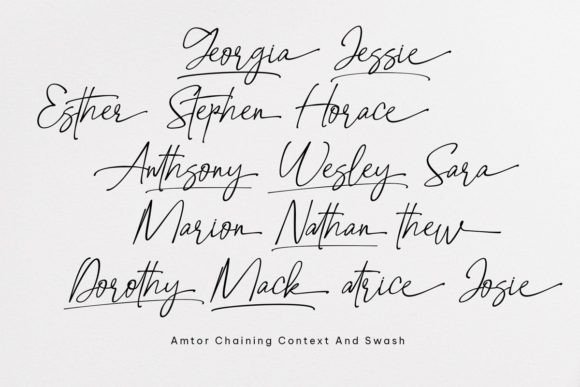 Georgia Jessie
Esther Stephen Horace
Anthsony Wesley Sara
Marion Nathan thew
Dorothy Mack atrice Josie
Amtor Chaining Context And Swash